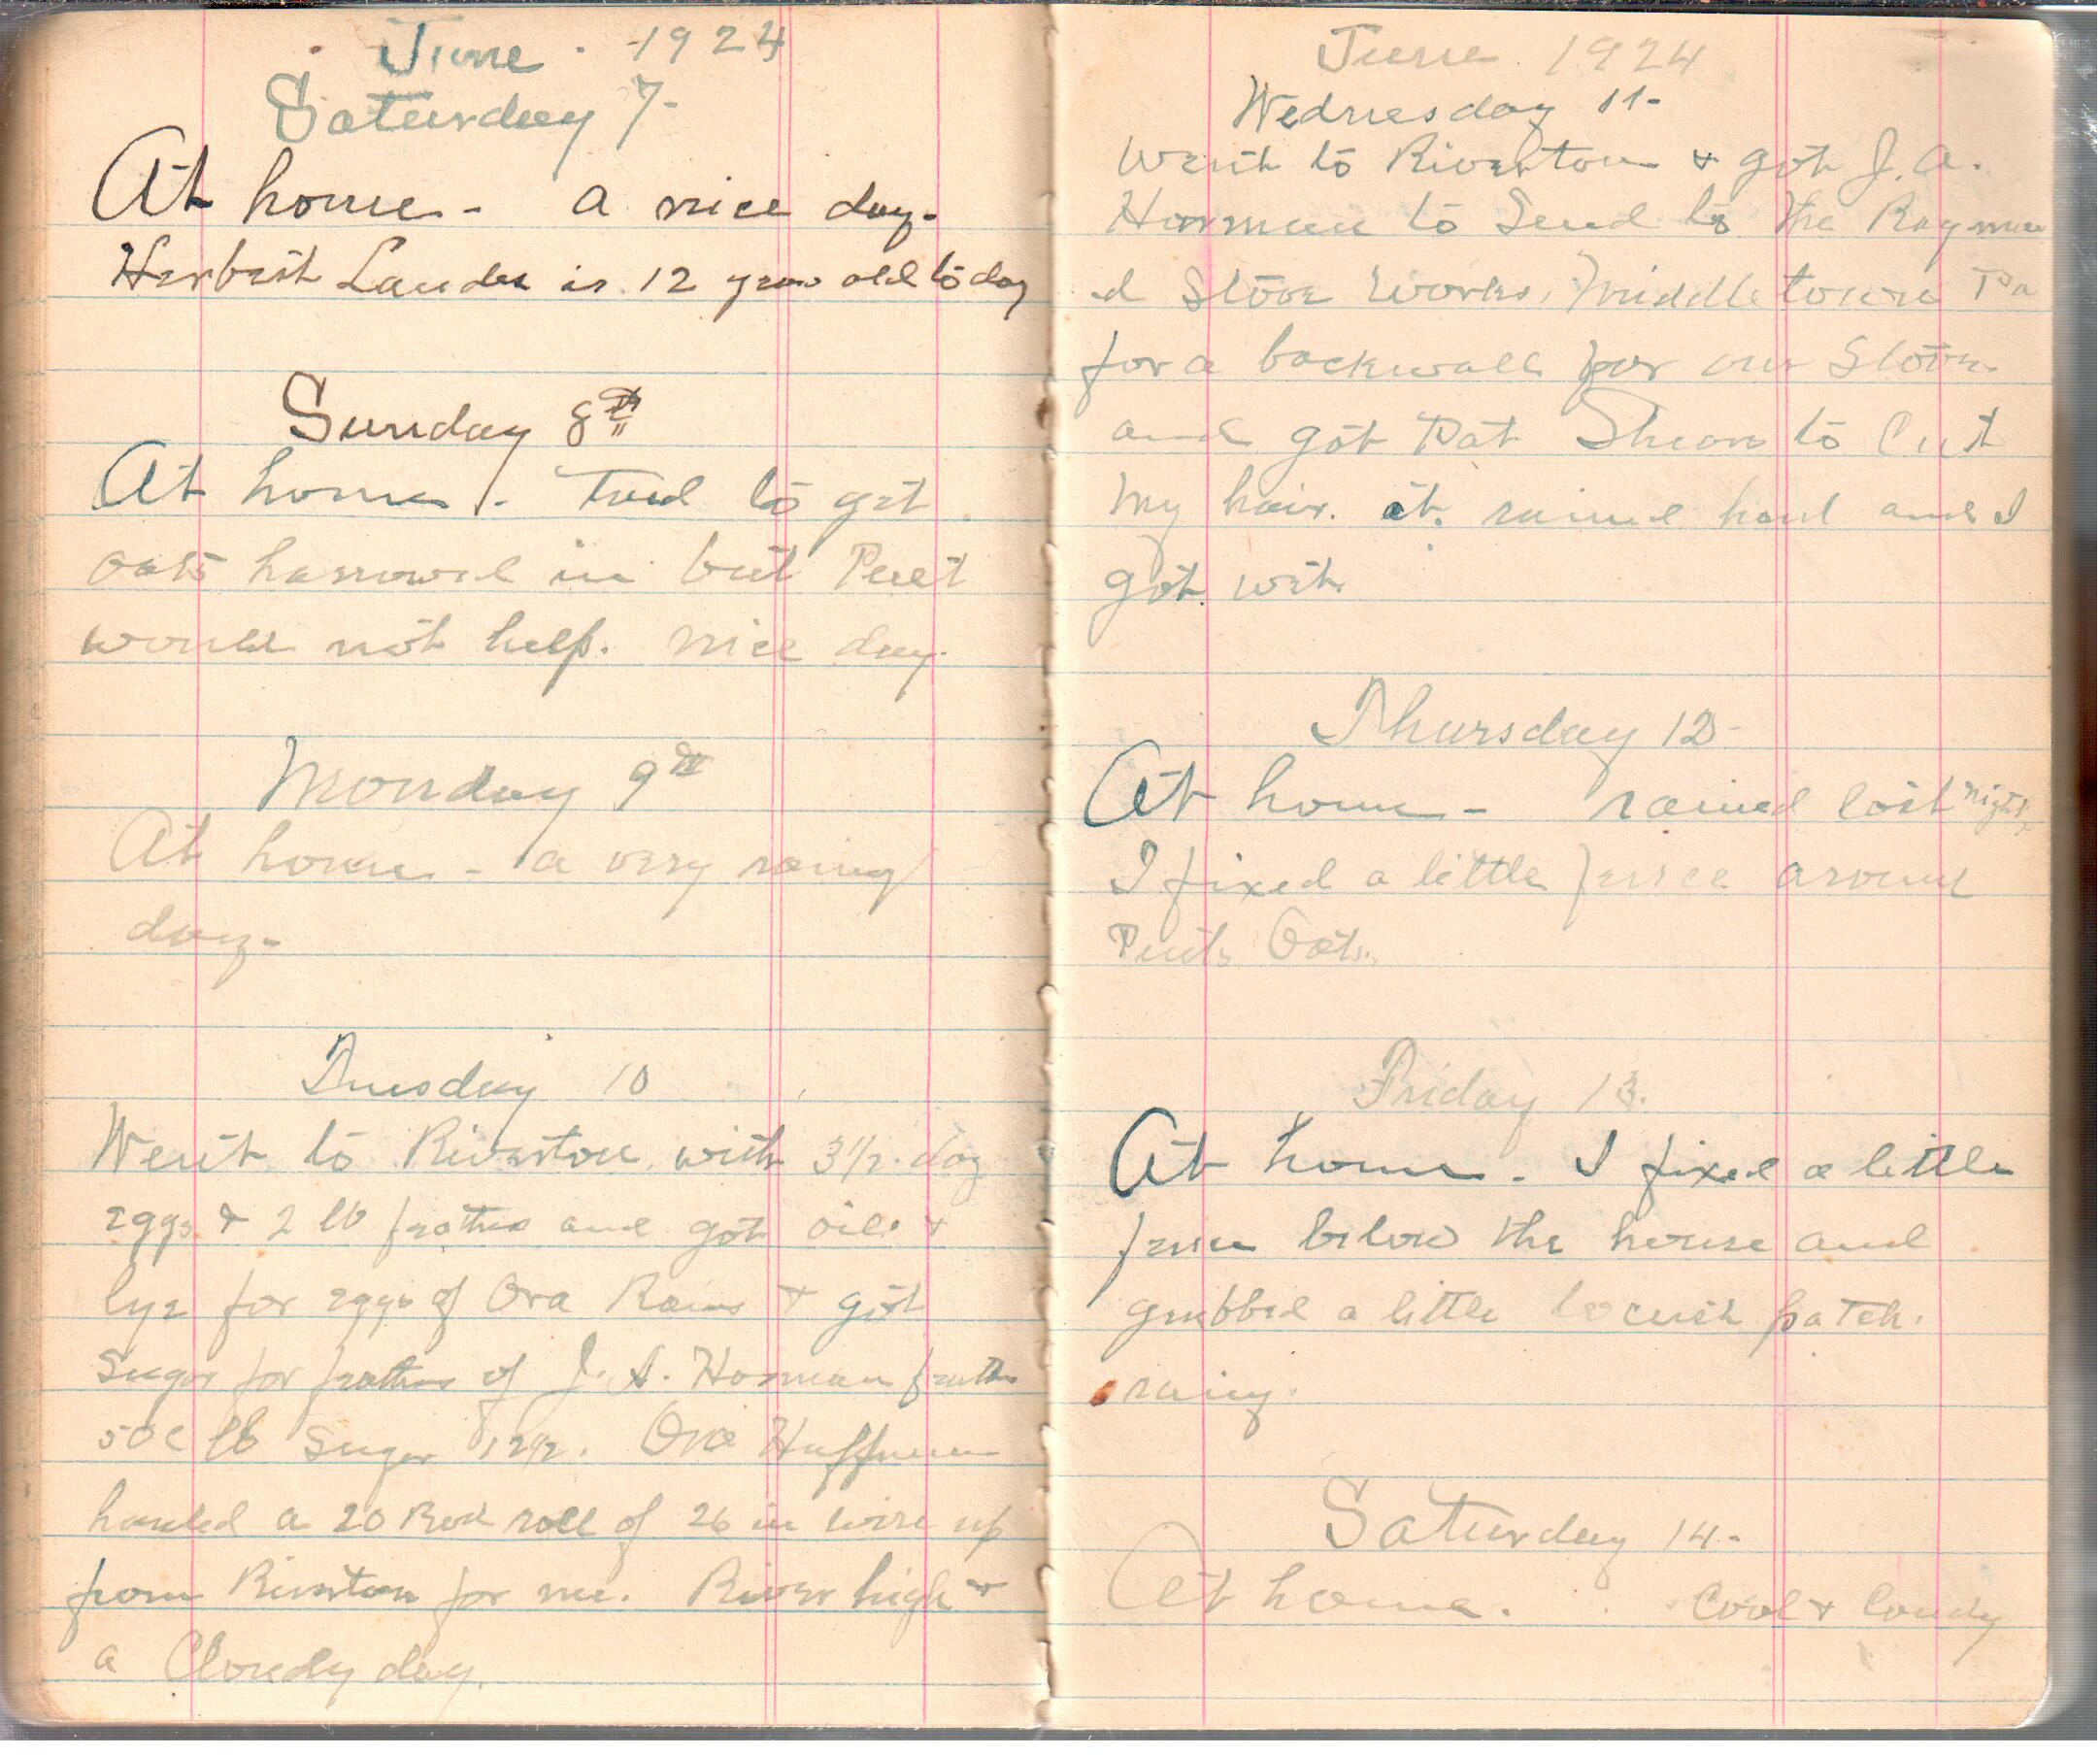 June 1924
Saturday 7-
At home - a nice day-
Herbert Lauder is 12 years old to day
Sunday 8th
At home. Tried to get
oats harrowed in but Peet
would not help. nice day.
Monday 9th
At home - a very rainy
day-
Tuesday 10
Went to Riverton with 3 1/2 doz
eggs & 2 lb feathers and got oil &
lye for eggs of Ora Rains & got
Sugar for feathers of J. A. Horman feathers
50c lb Sugar 12 1/2. Ora Huffman
hauled a 20 Rod roll of 26 in wire up
from Riverton for me. River high &
a Cloudy day.
June 1924
Wednesday 11-
Went to Riverton & got J. A.
Horman to Send to the Raymon
d Stove Works, Middletown Pa
for a backwall for our Stove
and got Pat to Cut
My hair. it rained hard and I
got wet
Thursday 12-
At home - rained last night
I fixed a little fence around
Peets Oats.
Friday 13.
At home. I fixed a little
fence below the house and
grubbed a little locust patch.
rainy.
Saturday 14-
At home. Cool & Coudy